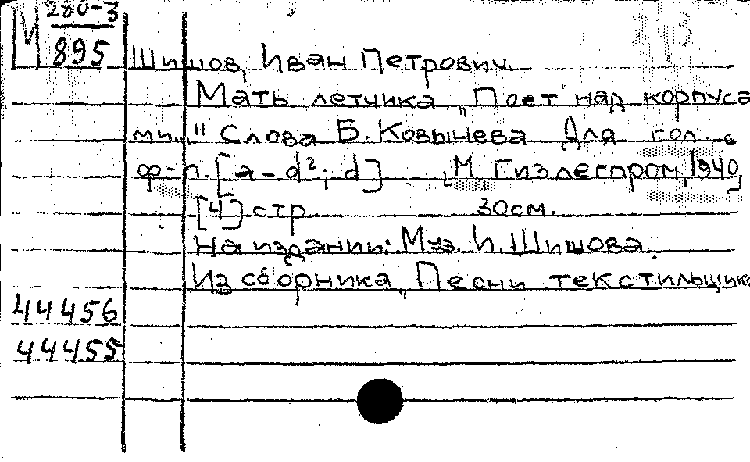 М 280-3
895
Шишов, Иван Петрович.
Мать летчика „Поет над корпуса
ми..." Слова Б. Ковынева Для гол. с
ф-п. [a - d²; d] [М. Гизлегпром, 1940]
[4] стр. 30см.
На издании: Муз. И. Шишова.
Из сборника „Песни текстильщика
44456
44455